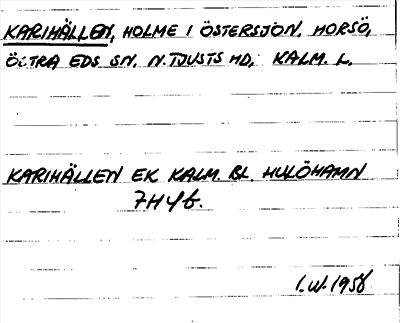 KARIHÄLLEN, HOLME I ÖSTERSJÖN, HORSÖ,
ÖSTRA EDS SN, N. TJUSTS HD, KALM. L.
KARIHÄLLEN EK KALM. BL. HULÖHAMN
7H4b.
I.W. 1958